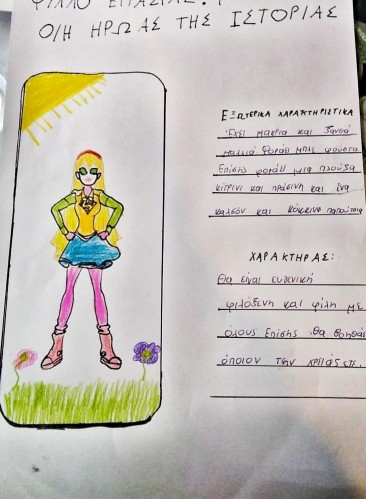 ΦΥΛΛΟ ΕΡΓΑΣΙΑΣ: 1
Ο/Η ΗΡΩΑΣ ΤΗΣ ΙΣΤΟΡΙΑΣ
ΕΞΩΤΕΡΙΚΑ ΧΑΡΑΚΤΗΡΙΣΤΙΚΑ
Έχει μακρια και ξανθά
μαλλιά φοράει μπλε φούστα
Επίσης φοράει μια μπλούζα
κίτρινη και πράσινη και ένα
καλσόν και κόκκινα παπούτσια
ΧΑΡΑΚΤΗΡΑΣ:
Θα είναι ευγενική
φιλόξενη και φίλη με
όλους Επίσης θα βοηθάει
όποιον την χρειάζεται